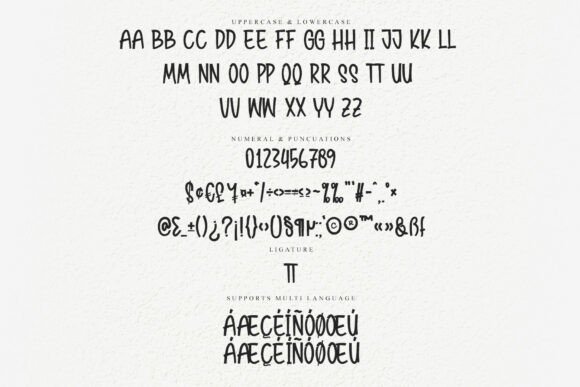 UPPERCASE & LOWERCASE
AA BB CC DD EE FF GG HH II JJ KK LL
MM NN OO PP QQ RR SS TT UU
VV WW XX YY ZZ
NUMERAL & PUNCUATIONS
0123456789
$¢€£¥¤+*/÷<>=≠≤≥~%‰"'#-^,.°×
@&_±()¿?¡!{}‹›[]§¶µ:;'©®™«»&ßſ
LIGATURE
TT
SUPPORTS MULTI LANGUAGE
ÁÆÇÉÍÑÓØŒÚ
ÁÆÇÉÍÑÓØŒÚ